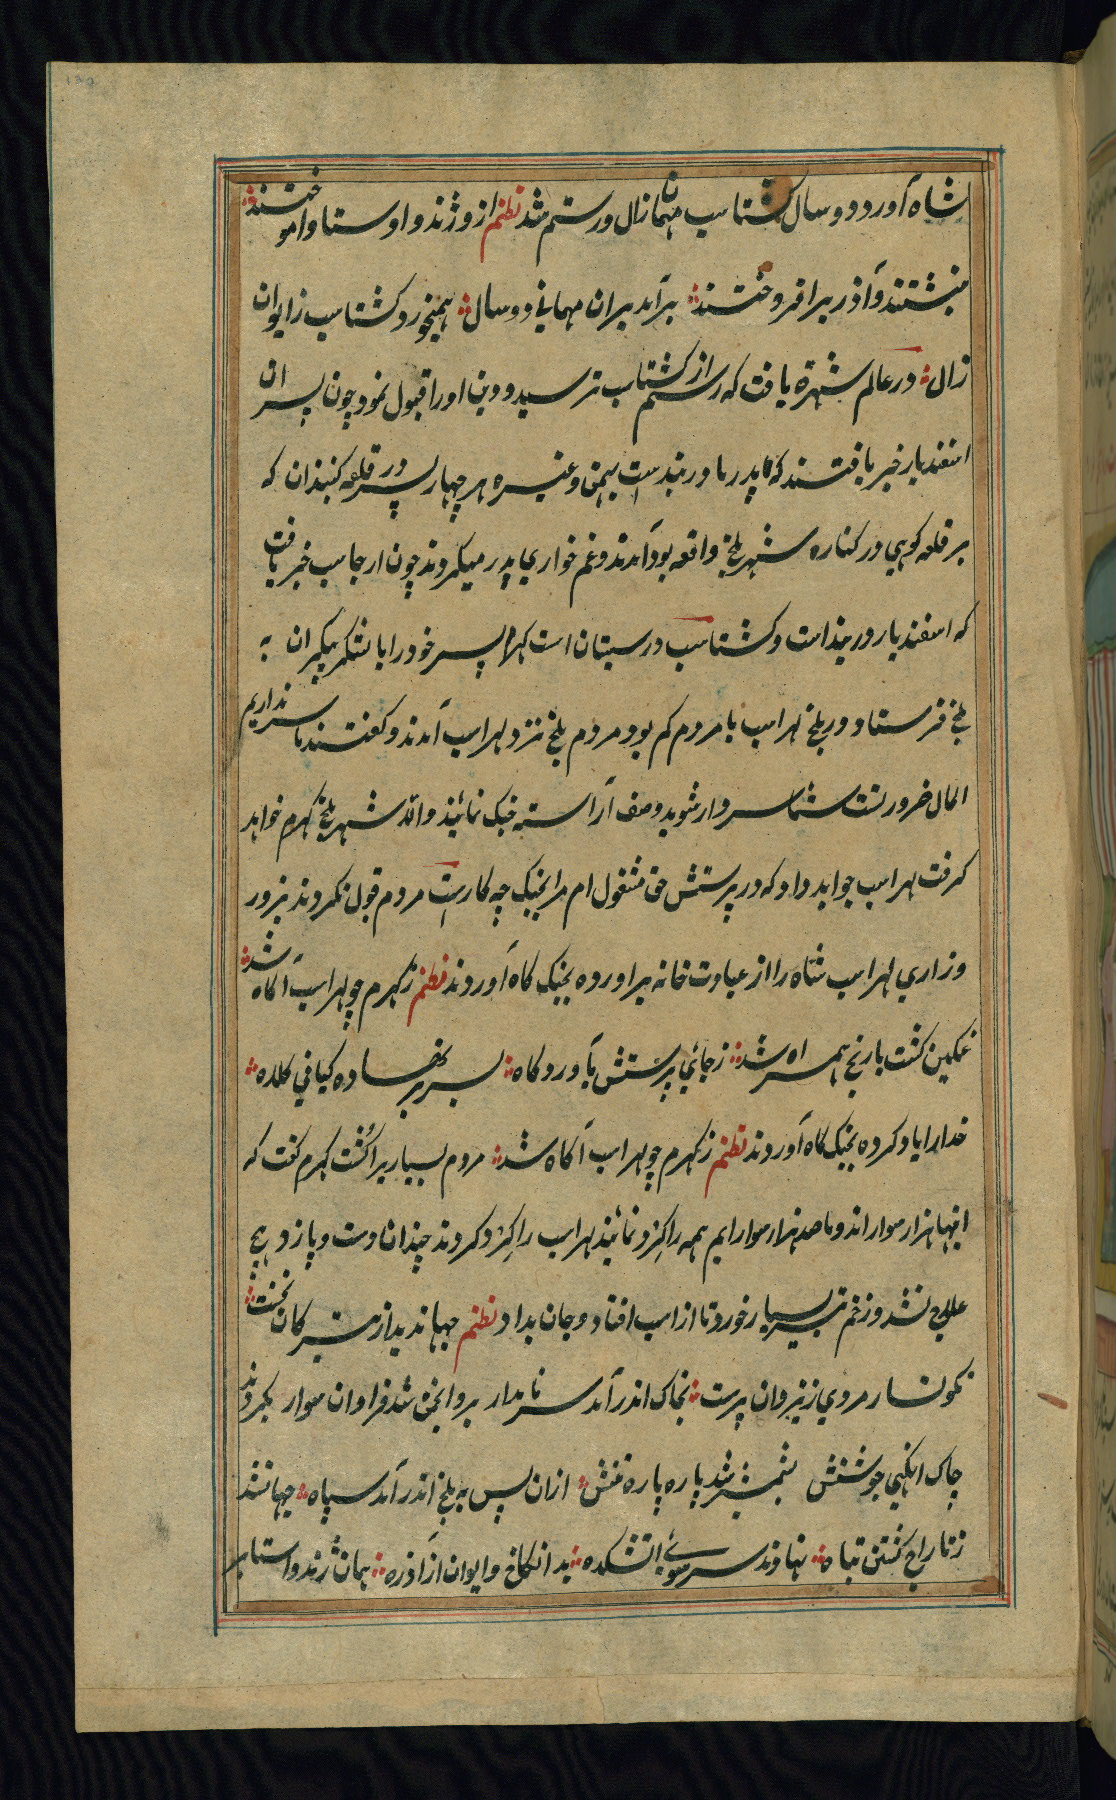 شاه آورد دو سال كشتاسب مهمان زال و رستم شد نظم ازو ژند و اوستا واموختند
نبشتند و آذر برافروختند برآمد بران مهماني دو سال همیخورد كشتاسب ز ایوان
زال در عالم شهرة یافت كه رستم از كشتاسب ترسید و دین او را قبول نمود چون پسران
اسفندیار خبر یافتند كه پدر ما در بندست بهمن و غیره هر چهار پسر در قلعه كنبذان كه
بر قلعه كوهي در كناره شهر بلخ واقعه بود آمدند و غم خواري پدر میكردند چون ارجاسب خبر یافت
كه اسفندیار در بند است و كشتاسب در سیستان است كهرم پسر خود را با لشكر بیكران به
بلخ فرستاد و در بلخ لهراسب با مردم كم بود مردم بلخ نزد لهراسب آمدند و كفتند ما سر نداریم
المال ضرورست شما سردار شوید و صف آراسته جنك نمائید والا شهر بلخ كهرم خواهد
كرفت لهراسب جواب داد كه در پرستش حق مشغول ام مرا بجنك چه كارست مردم قبول نكردند بزور
و زاري لهراسب شاه را از عبادت خانه براورده بجنك كاه آوردند نظم ز كهرم چو لهراسب آكاه شد
غمكین كشت با رنج همراه شد ز جائي پرستش بآوردكاه بسر بر نهاده كیاني كلاه
خدا را یاد كرده بجنك كاه آوردند نظم ز كهرم چو لهراسب آكاه شد مردم بسیار برا كشت كهرم كفت كه
اینها هزار سوار اند و ما صد هزار سوار ایم همه را كرد نمائید لهراسب را كرد كردند چندان دست و پا زد هیچ
علاج نشد و زخم تیر بسیار خورد تا از اسب افتاد و جان بداد نظم جهاندیده از تیر تركان بخست
نكونسار مردي ز یزدان پرست بخاك اندر آمد سر نامدار برو انجمن شد فراوان سوار بكردند
چاك انكهي جوشنش بشمشیر شد پاره پاره تنش ازان پس به بلخ اندر آمد سپاه جهان شد
ز تاراج كشتن تباه نهادند سر سوئے آتشكده بدان كاخ و ایوان از آذره همان ژند و استا بر